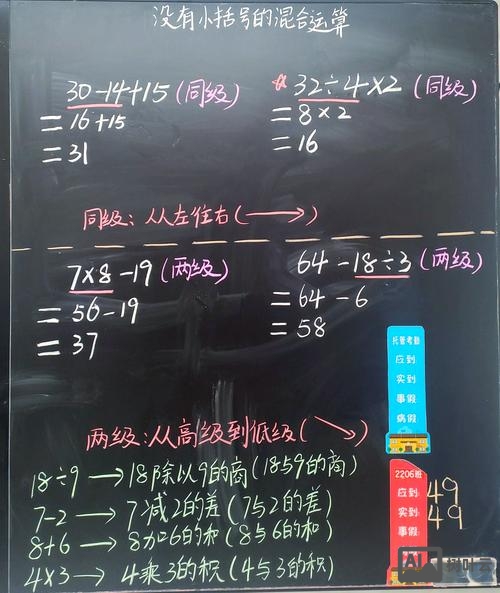 没有小括号的混合运算
30-14+15(同级)
=16+15
=31
☆32÷4×2(同级)
=8×2
=16
同级：从左往右(⟶)
7×8-19(两级)
=56-19
=37
64-18÷3(两级)
=64-6
=58
两级：从高级到低级(↘)
18÷9→18除以9的商(18与9的商)
7-2→7减2的差(7与2的差)
8+6→8加6的和(8与6的和)
4×3→4乘3的积(4与3的积)
托管考勤
应到
实到
事假
病假
2206班
应到 49
实到 49
事假
AI